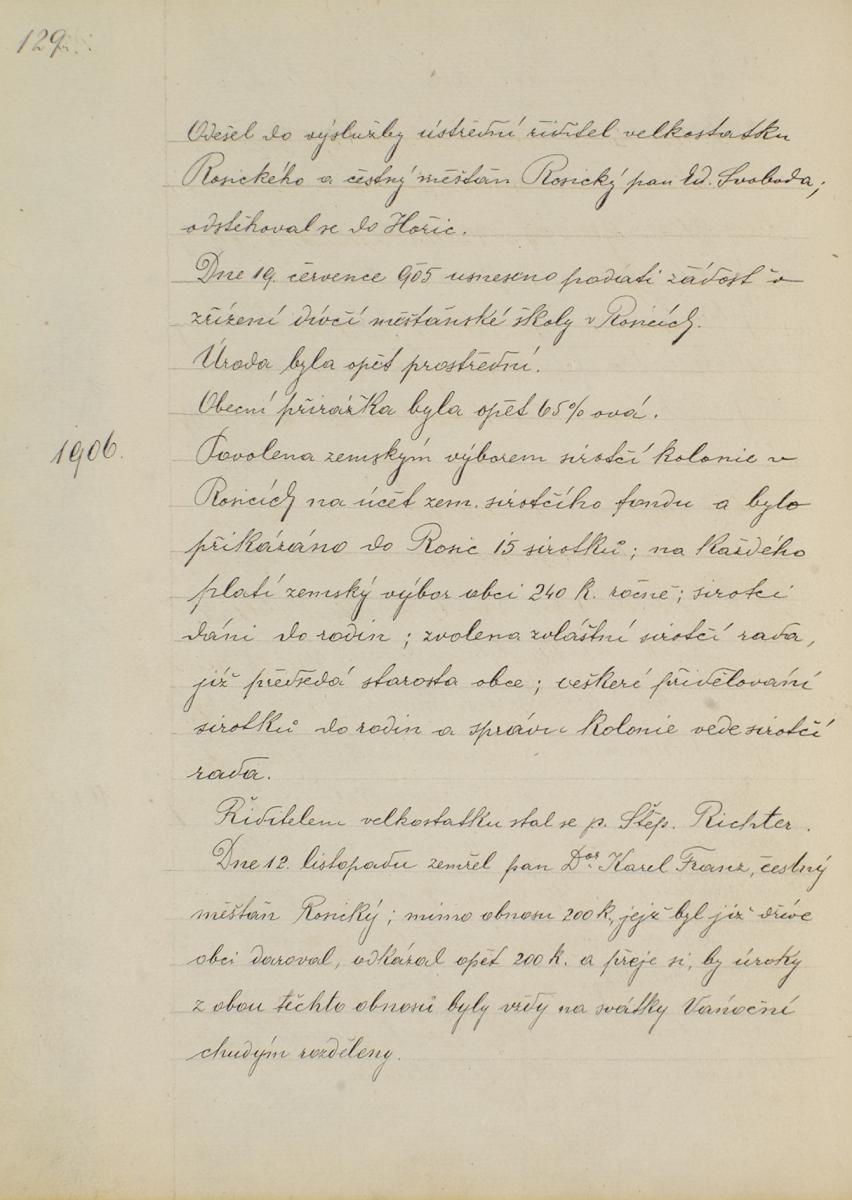 129.
Odešel do výslužby ústřední řiditel velkostatku
Rosického a čestný měšťan Rosický pan Ed. Svoboda,
odstěhoval se do Hořic.
Dne 19. července 905 usneseno podati žádost o
zřízení dívčí měšťanské školy v Rosicích.
Úroda byla opět prostřední.
Obecní přirážka byla opět 65% ová.
1906.
Povolena zemským výborem sirotčí kolonie v
Rosicích na účet zem. sirotčího fondu a bylo
přikázáno do Rosic 15 sirotků; na každého
platí zemský výbor obci 240 K. ročně; sirotci
dáni do rodin; zvolena zvláštní sirotčí rada,
jíž předsedá starosta obce; veškeré přidělování
sirotků do rodin a správu kolonie vede sirotčí
rada.
Řiditelem velkostatku stal se p. Štěp. Richter.
Dne 12. listopadu zemřel pan Dor. Karel Franz, čestný
měšťan Rosický; mimo obnosu 200 K, jejž byl již dříve
obci daroval, odkázal opět 200 K. a přeje si, by úroky
z obou těchto obnosů byly vždy na svátky Vánoční
chudým rozděleny.